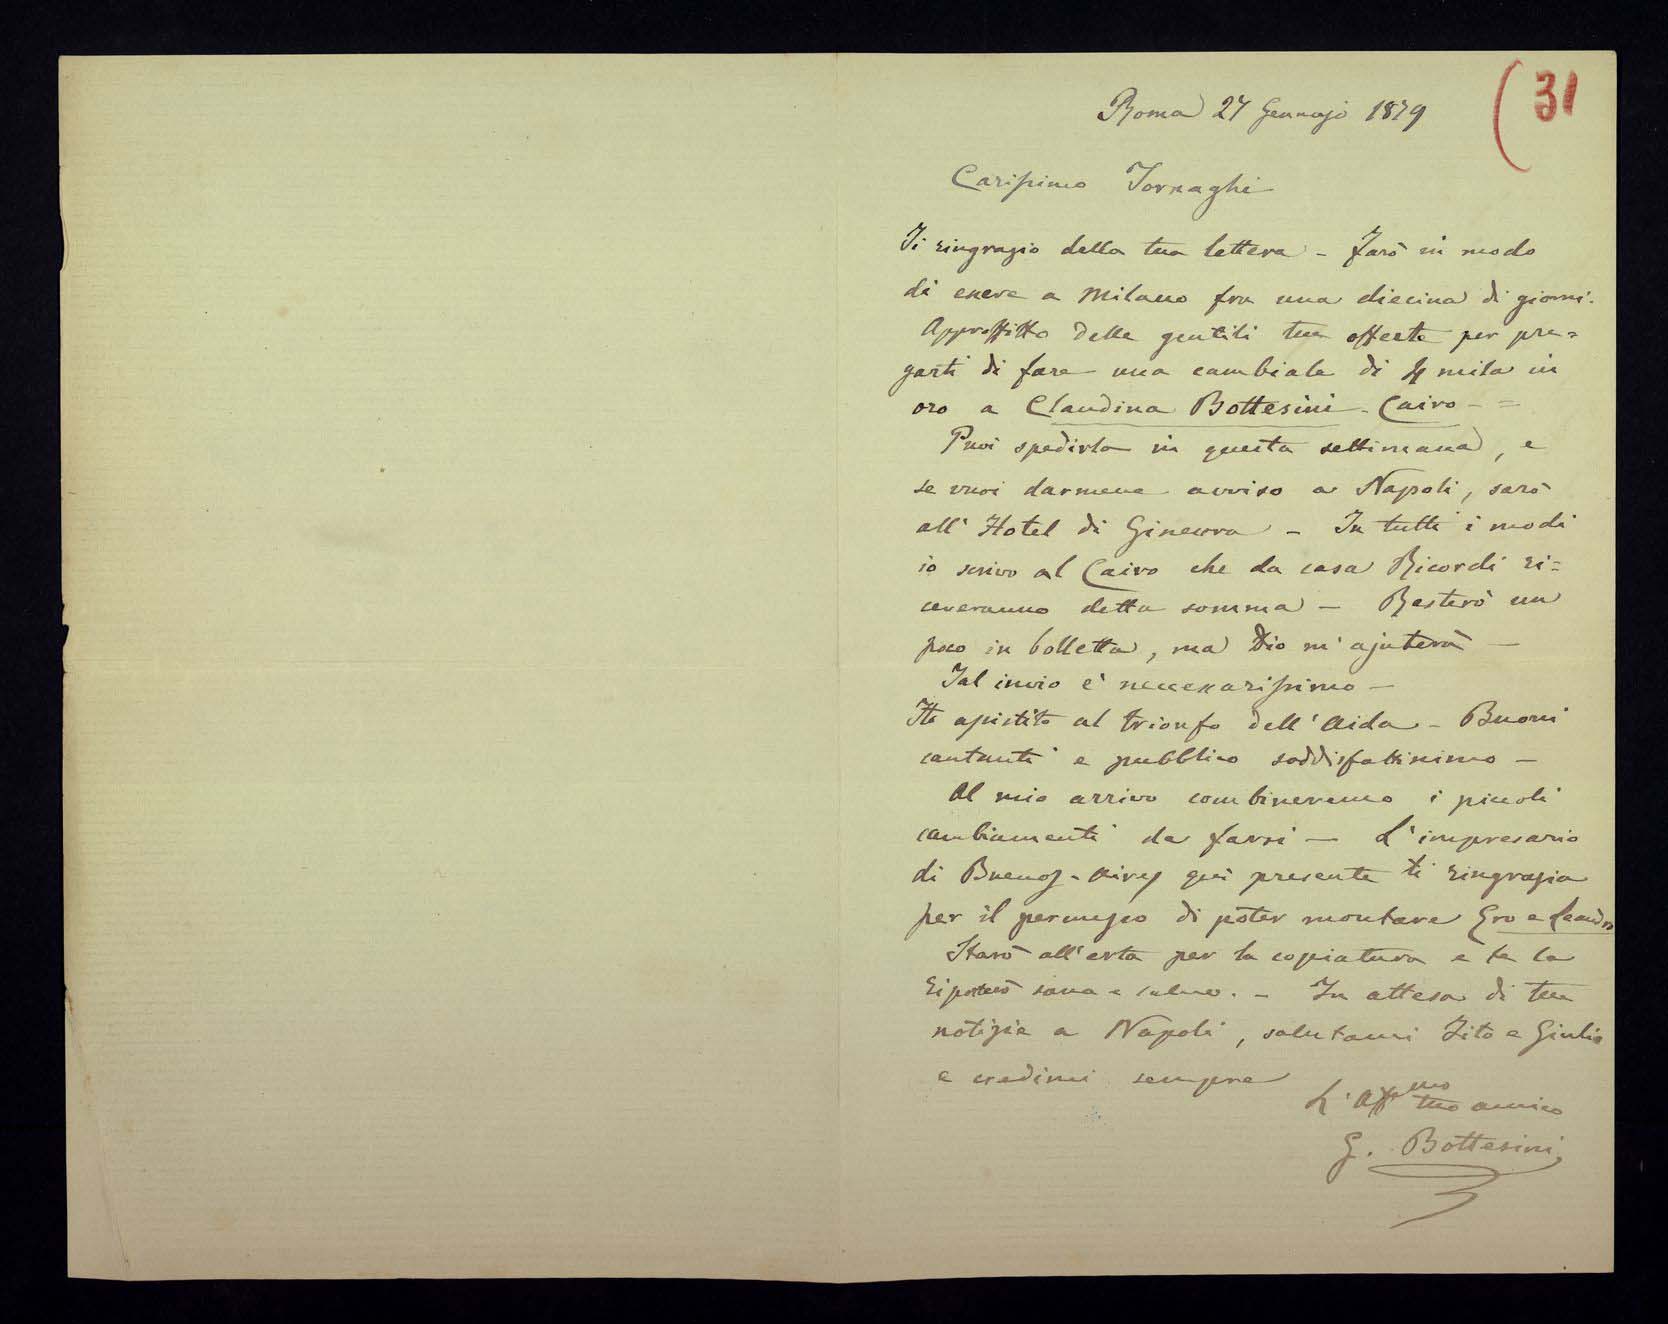 (31
Roma 27 Gennajo 1879
Carissimo Tornaghi
Ti ringrazio della tua lettera - Farò in modo
di essere a Milano fra una diecina di giorni.
Approffitto delle gentili tue offerte per pre=
garti di fare una cambiale di 4 mila in
oro a Claudina Bottesini - Cairo - =
Puoi spedirla in questa settimana, e
se vuoi darmene avviso a Napoli, sarò
all'Hotel di Ginevra - In tutti i modi
io scrivo al Cairo che da casa Ricordi ri=
ceveranno detta somma - Resterò un
poco in bolletta, ma Dio m'ajuterà -
Tal invio è neccessarissimo -
Ho assistito al trionfo dell'Aida - Buoni
cantanti e pubblico soddisfattissimo -
Al mio arrivo combineremo i piccoli
cambiamenti da farsi - L'impresario
di Buenos-Aires quì presente ti ringrazia
per il permesso di poter montare Ero e Leandro
Starò all'erta per la copiatura e te la
riporterò sana e salva. - In attesa di tue
notizie a Napoli, salutami Tito e Giulio
e credimi sempre
L'Aff.mo tuo amico
G. Bottesini